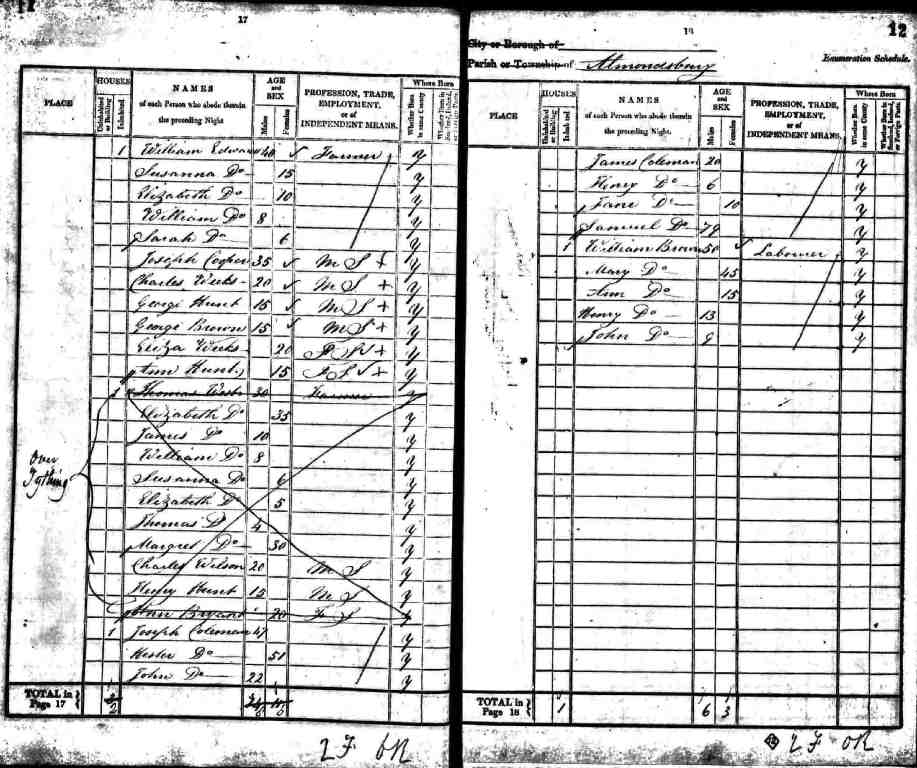 17
PLACE HOUSES NAMES of each Person who abode therein the preceding Night AGE and SEX PROFESSION, TRADE, EMPLOYMENT, or of INDEPENDENT MEANS. Where Born
Uninhabited or Building Inhabited Males Females Whether Born in same County
1 William Edwards 40 Farmer y
Susanna Do 15 y
Elizabeth Do 10 y
William Do 8 y
Sarah Do 6 y
Joseph Cooper 35 M S + y
Charles Weeks 20 M S + y
George Hunt 15 M S + y
George Brown 15 M S + y
Eliza Weeks 20 F S + y
Ann Hunt 15 F S + y
1 Thomas 30 Farmer y
Elizabeth Do 35 y
James Do 10 y
William Do 8 y
Susanna Do 6 y
Over Tything
Elizabeth Do 5 y
Thomas Do 4 y
Margret Do 30 y
Charles Wilson 20 M S y
Henry Hunt 15 M S y
Ann Bryant 20 F S y
1 Joseph Coleman 47 y
Hester Do 51 y
John Do 22 y
TOTAL in Page 17 2
2 F OR
18
12
City or Borough of
Parish or Township of Almondsbury Enumeration Schedule.
PLACE HOUSES NAMES of each Person who abode therein the preceding Night. AGE and SEX PROFESSION, TRADE, EMPLOYMENT, or of INDEPENDENT MEANS. Where Born
Uninhabited or Building Inhabited Males Females Whether Born in same County Whether Born in Scotland, Ireland, or Foreign Parts.
James Coleman 20 y
Henry Do 6 y
Jane Do 10 y
Samuel Do 79 y
1 William Brown 50 Labourer y
Mary Do 45 y
Ann Do 15 y
Henry Do 13 y
John Do 9 y
TOTAL in Page 18 1 6 3
2 F OR